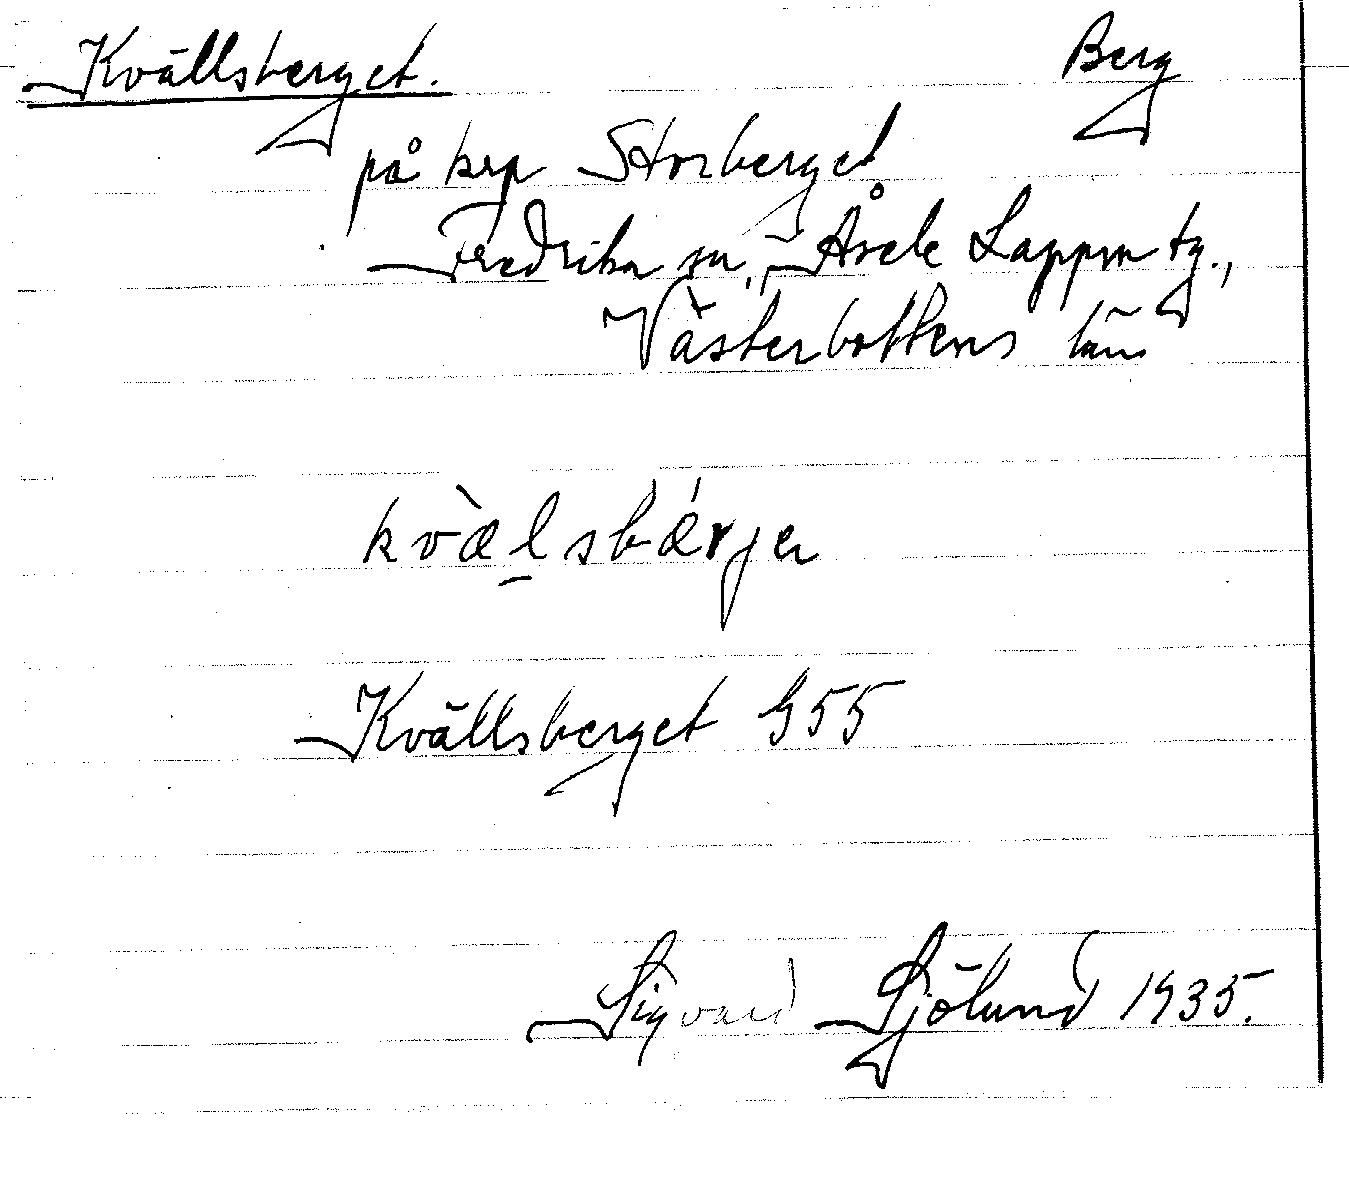 Kvällsberget. Berg
på krp Storberget
Fredrika sn, Åsele Lappm tg.,
Västerbottens län
kvæ̀lsbárjer
Kvällsberget G55
Sigvard Sjölund 1935.